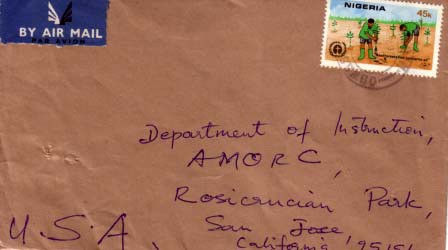 BY AIR MAIL
PAR AVION
NIGERIA
45k
Department of Instruction,
AMORC,
Rosicrucian Park,
San Jose
California
U.S.A.